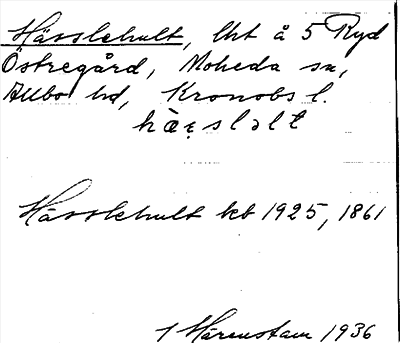 Hässlehult, lht å 5 Ryd
Östregård, Moheda sn,
Allbo hd, Kronobs l.
hæ̀ṣləlt
Hässlehult kb 1925, 1861
1 Härenstam 1936